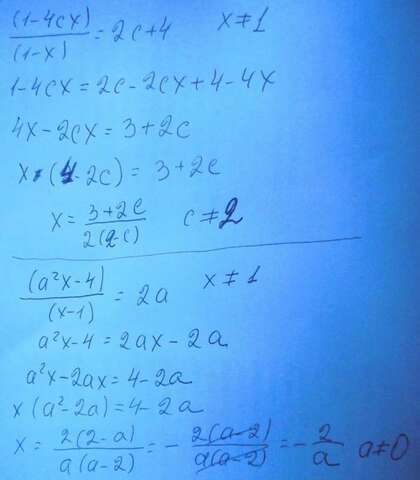 (1-4cx)/(1-x) = 2c+4 x≠1
1-4cx = 2c-2cx+4-4x
4x-2cx = 3+2c
x·(4-2c) = 3+2c
x = (3+2c)/(2(2-c)) c≠2
(a²x-4)/(x-1) = 2a x≠1
a²x-4 = 2ax-2a
a²x-2ax = 4-2a
x(a²-2a) = 4-2a
x = 2(2-a)/(a(a-2)) = -2(a-2)/(a(a-2)) = -2/a a≠0